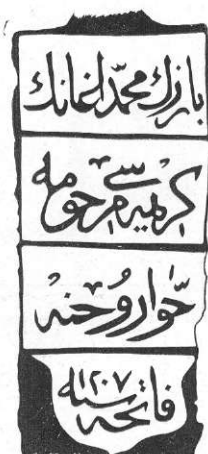 بازرك محمد اغانك
كريمه سى مرحومه
حوا روحنه
فاتحه سنه ١٢٠٧